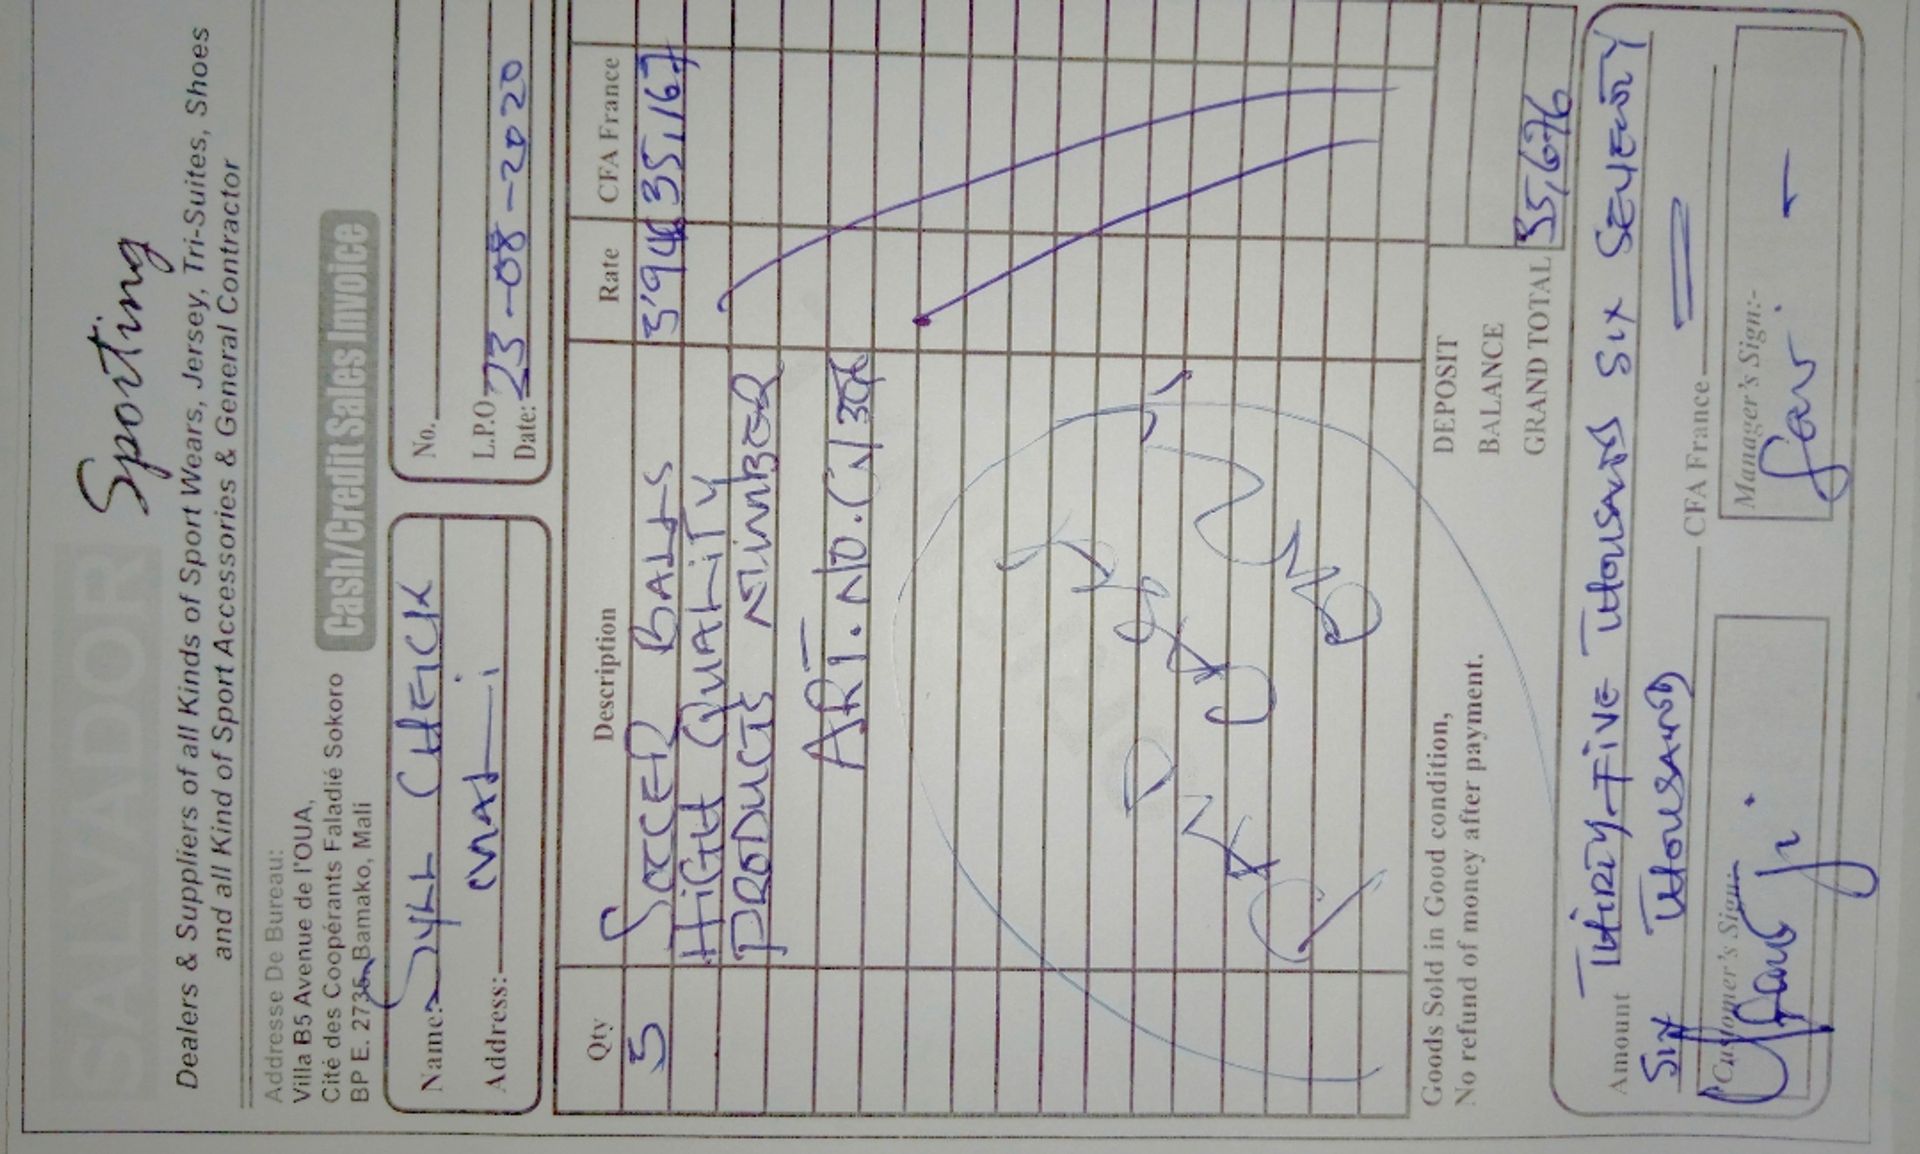 SALVADOR Sporting
Dealers & Suppliers of all Kinds of Sport Wears, Jersey, Tri-Suites, Shoes
and all Kind of Sport Accessories & General Contractor
Addresse De Bureau:
Villa B5 Avenue de l'OUA,
Cité des Coopérants Faladié Sokoro
BP E. 2735, Bamako, Mali
Cash/Credit Sales Invoice
Name: SYLL CHEICK
Address: MALI
No.
L.P.O
Date: 23-08-2020
Qty Description Rate CFA France
5 SOCCER BALLS 35,167
HIGH QUALITY
PRODUCTS NUMBER
ART. NO.
Goods Sold in Good condition,
No refund of money after payment.
DEPOSIT
BALANCE
GRAND TOTAL 35,676
Amount THIRTY-FIVE THOUSAND SIX SEVENTY
SIX THOUSAND CFA France
Customer's Sign:
Manager's Sign:-